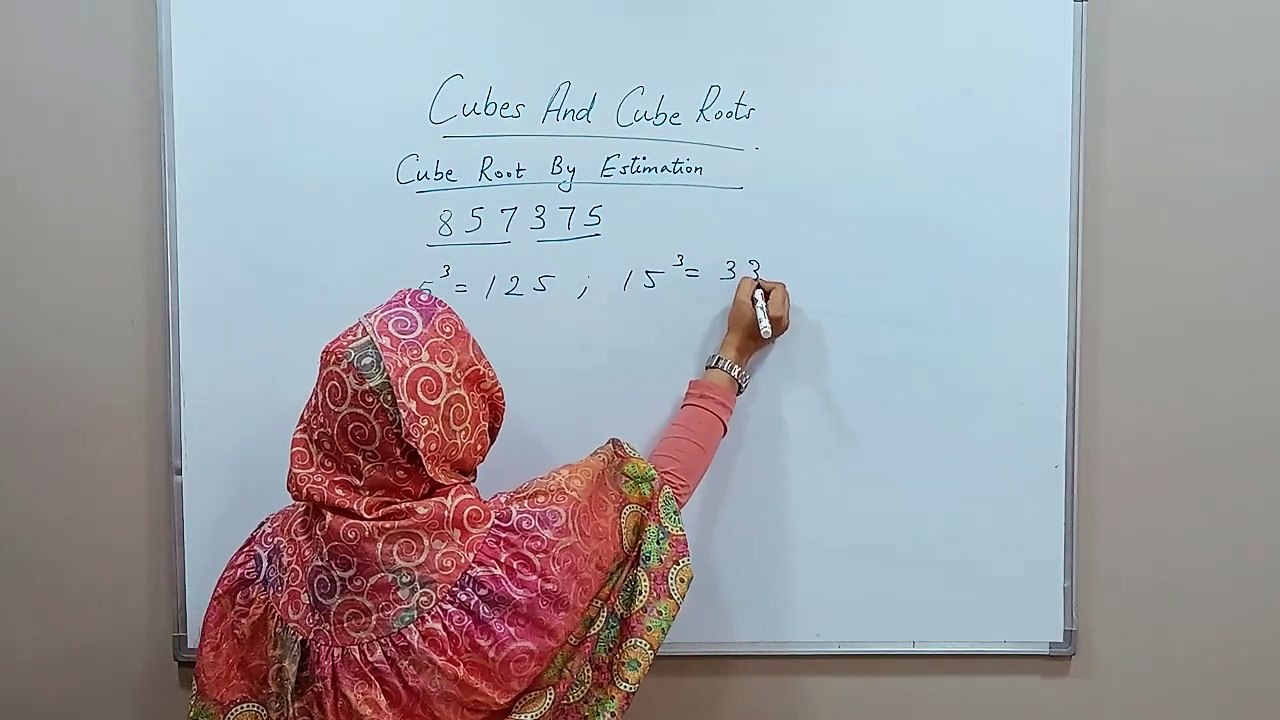 Cubes And Cube Roots
Cube Root By Estimation
857 375
5³ = 125 ; 15³ = 33